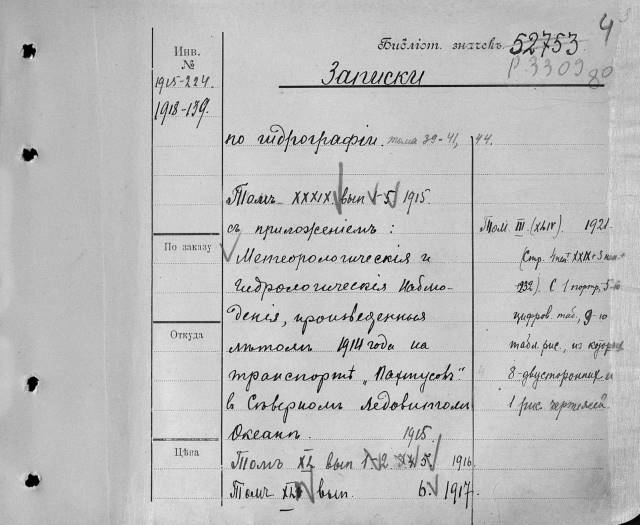 4
Инв.
№
Библіот. значекъ 52753
Р.3309
80
1915-224
1918-139
Записки
по гидрографіи. тома 39-41, 44.
Томъ XXXIX вып 5. 1915.
съ приложеніемъ:
По заказу
Метеорологическія и
Гидрологическія наблю-
денія, произведенныя
Откуда
лѣтомъ 1914 года на
транспортѣ „Пахтусовъ"
в Сѣверномъ Ледовитомъ
Океанѣ. 1915.
Цѣна
Томъ XL вып 1-2 1916
Томъ вып. 6. 1917.
Том III (XLIV). 1921
(Стр. XXIX + 3
932). С 1 портр, 5-ю
цифров. таб., 9-ю
табл. рис., из которых
8-двусторонних и
1 рис. чертежей